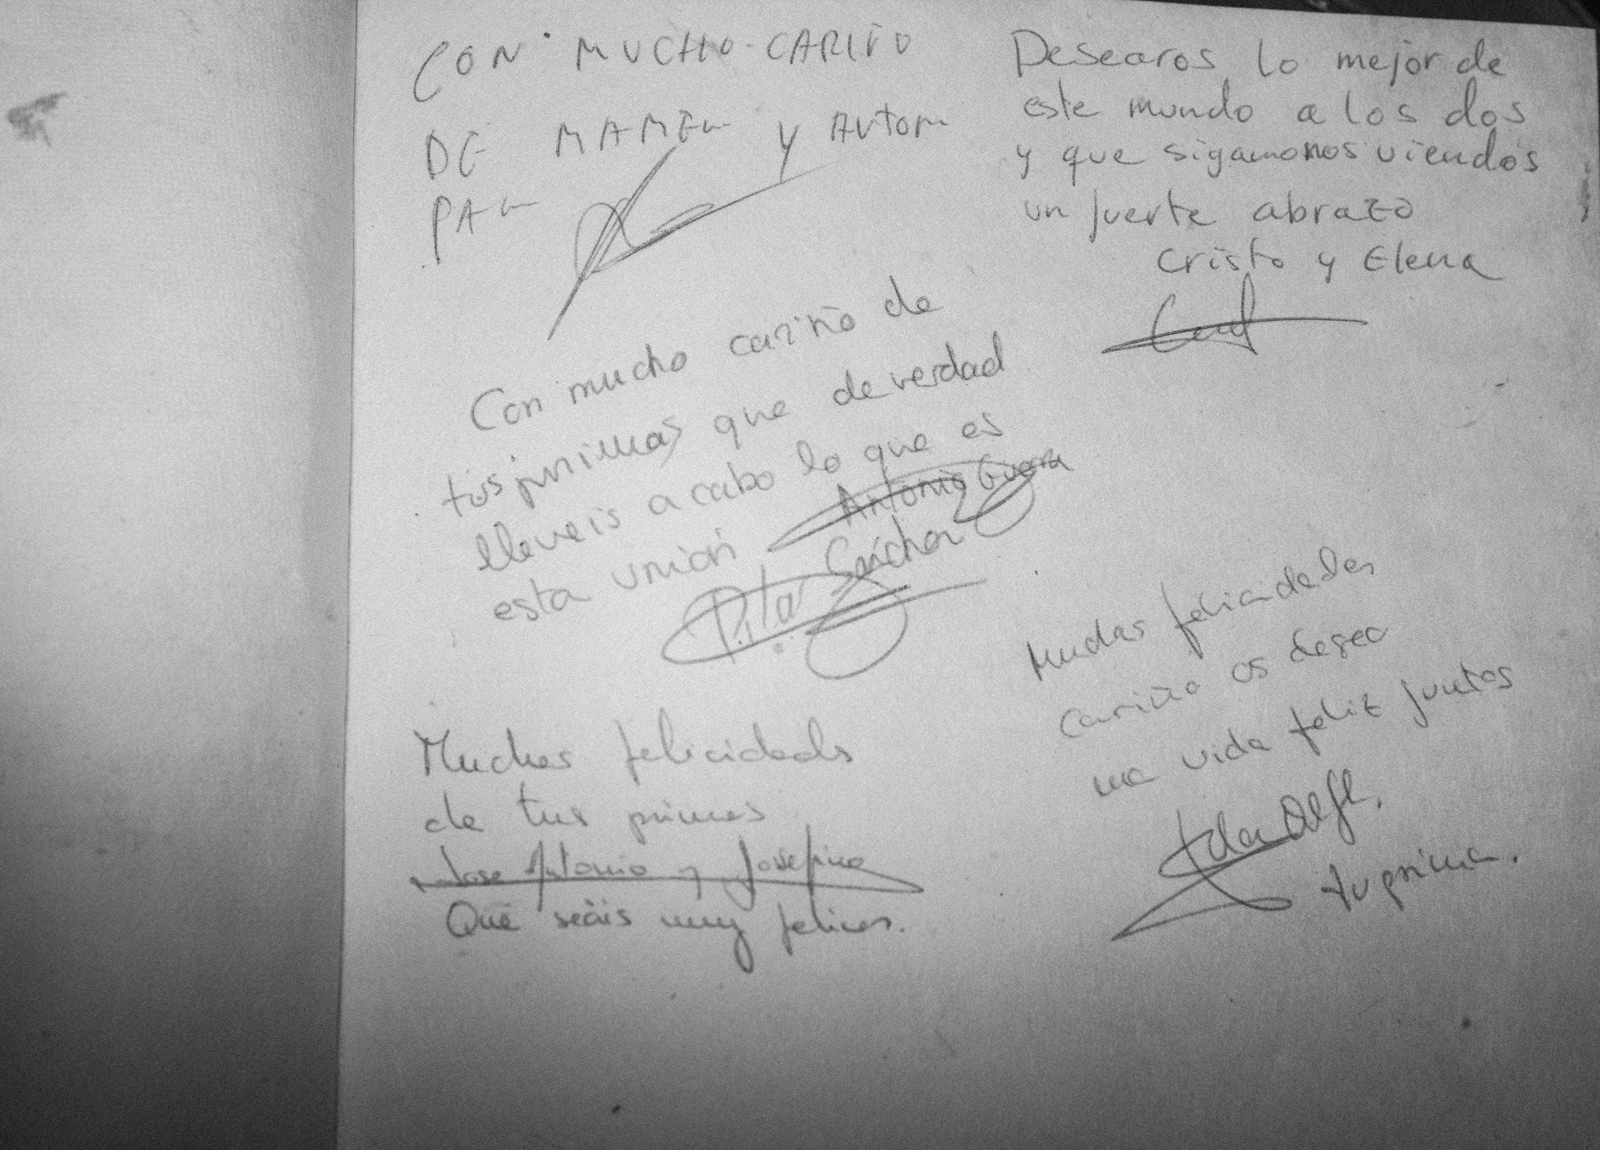 CON MUCHO CARIÑO
DE MAMEN Y ANTONIO
Con mucho cariño de
tus primas que de verdad
lleveis a cabo lo que es
esta unión
Antonio Guerra
Pilar Sánchez
Muchas felicidads
de tus primos
Jose Antonio y Josefina
Que seáis muy felices.
Desearos lo mejor de
este mundo a los dos
y que sigamonos viendos
un fuerte abrazo
Cristo y Elena
Muchas felicidades
cariño os deseo
una vida feliz juntos
tu prima.